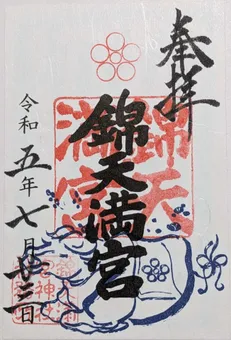 奉拝
錦天満宮
令和五年七月廿三日
錦天
満宮